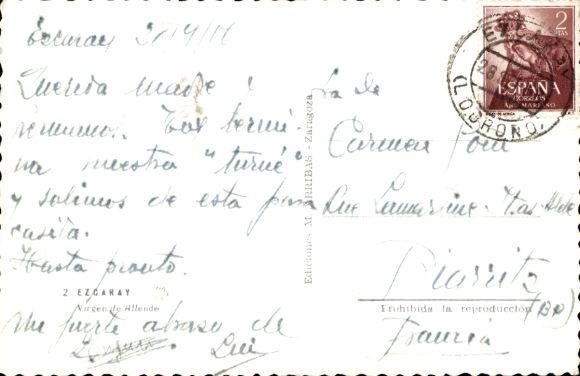 Ezcaray
Querida madre:
hermanos. Hoy termi-
na nuestra "turné"
y salimos de esta para
casita.
Hasta pronto.
2 EZCARAY
Virgen de Allende
Un fuerte abrazo de
Luis
Ediciones M. ARRIBAS - Zaragoza
2
PTAS
ESPAÑA
CORREOS
AÑO MARIANO
(LOGROÑO)
Sra de
Carmen
Rue Lamartine
Biarritz
Prohibida la reproducción
Francia